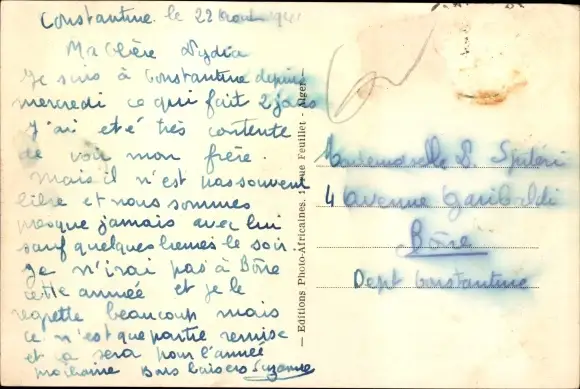 Constantine le 22 Août
Ma Chère Lydia
Je suis à Constantine depuis
mercredi ce qui fait 2 jours
J'ai eté très contente
de voir mon frère.
Mais il n'est pas souvent
libre et nous sommes
presque jamais avec lui
sauf quelques heures le soir.
Je n'irai pas à Bône
cette année et je le
regrette beaucoup mais
ce n'est que partie remise
et ça sera pour l'année
prochaine Bons baisers Suzanne
— Editions Photo-Africaines, rue Feuillet - Alger —
Mademoiselle L. Spiteri
4 Avenue Garibaldi
Bône
Dept Constantine